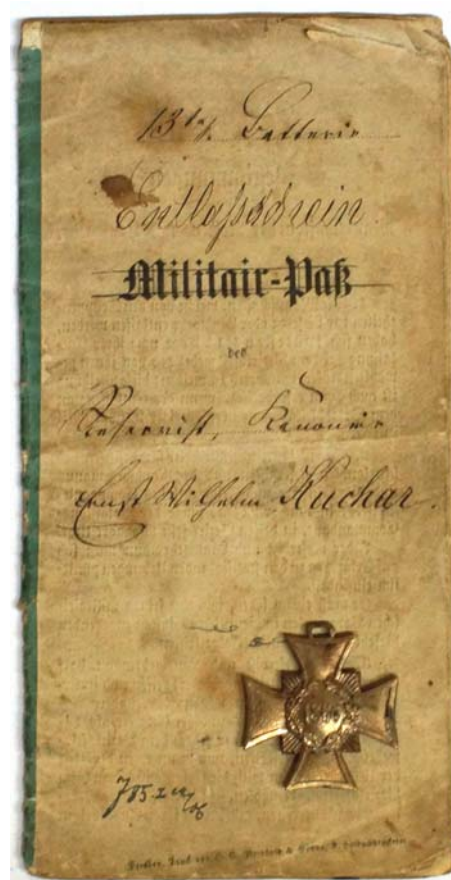 13te Batterie
Entlaßschein
Militair-Paß
des
Reservist, Kanonier
Ernst Wilhelm Kuchar.
Berlin,